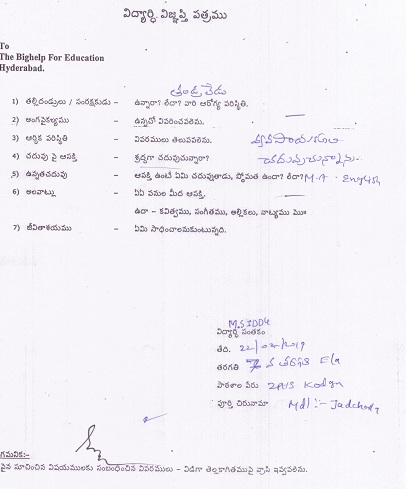 విద్యార్థి విజ్ఞప్తి పత్రము
To
The Bighelp For Education
Hyderabad.
తండ్రి లేడు
1) తల్లిదండ్రులు / సంరక్షకుడు – ఉన్నారా? లేదా? వారి ఆరోగ్య పరిస్థితి.
2) అంగవైకల్యము – ఉన్నచో వివరించవలెను.
3) ఆర్థిక పరిస్థితి – వివరములు తెలుపవలెను. వ్యవసాయం
4) చదువు పై ఆసక్తి – శ్రద్ధగా చదువుచున్నారా? చదువుచున్నాను
5) ఉన్నతచదువు – ఆసక్తి ఉంటే ఏమి చదువుతాడు, స్తోమత ఉందా? లేదా? M.A - English
6) అలవాట్లు – ఏఏ పనుల మీద ఆసక్తి.
ఉదా – కవిత్వము, సంగీతము, అల్లికలు, నాట్యము మొ॥
7) జీవితాశయము – ఏమి సాధించాలనుకుంటున్నది.
M.SIDDU
విద్యార్థి సంతకం
తేది. 22/02/2019
తరగతి 7 వ తరగతి E/M
పాఠశాల పేరు ZPHS Kodgu
పూర్తి చిరునామా Mdl :- Jadcherla
గమనిక:-
పైన సూచించిన విషయములకు సంబంధించిన వివరములు – విడిగా తెల్లకాగితముపై వ్రాసి ఇవ్వవలెను.